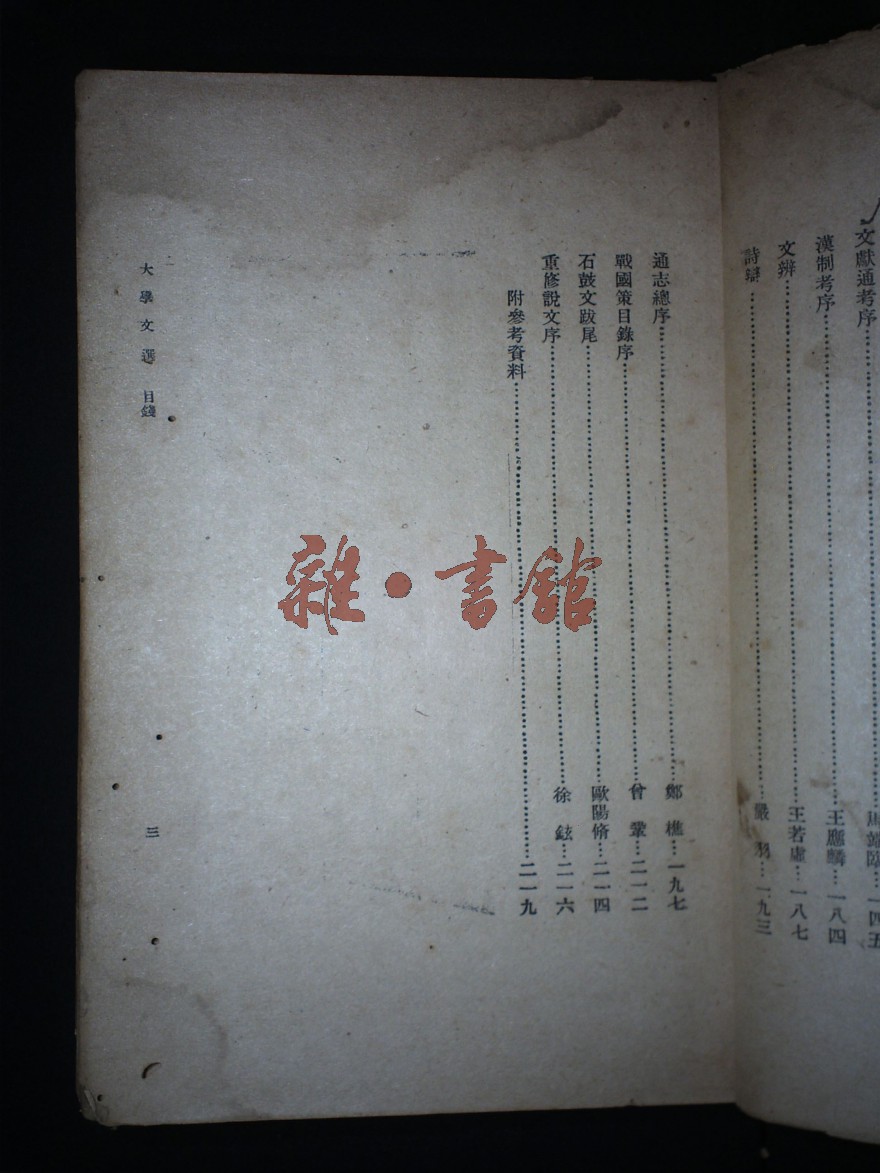 文獻通考序………馬端臨…一四五
漢制考序………王應麟…一八四
文辨………王若虛…一八七
詩辯………嚴羽…一九三
通志總序………鄭樵…一九七
戰國策目錄序………曾鞏…二一二
石鼓文跋尾………歐陽脩…二一四
重修說文序………徐鉉…二一六
附參考資料………二一九
大學文選 目錄
三
雜·書館